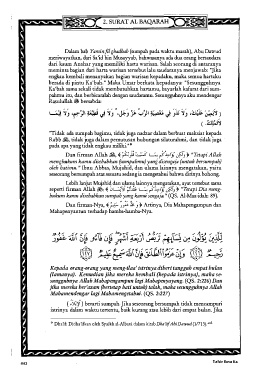 2. SURAT AL BAQARAH
Dalam bab Yamin fil ghadhab (sumpah pada waktu marah), Abu Dawud
meriwayatkan, dari Sa'id bin Musayyab, bahwasanya ada dua orang bersaudara
dari kaum Anshar yang memiliki harta warisan. Salah seorang di antaranya
meminta bagian dari harta warisan tersebut lalu saudaranya menjawab: "Jika
engkau kembali menanyakan bagian warisan kepadaku, maka semua hartaku
berada di pintu Ka'bah." Maka Umar berkata kepadanya: "Sesungguhnya
Ka'bah sama sekali tidak membutuhkan hartamu, bayarlah kafarat dari sum-
pahmu itu, dan berbicaralah dengan saudaramu. Sesungguhnya aku mendengar
Rasulullah ﷺ bersabda:
"Tidak ada sumpah bagimu, tidak juga nadzar dalam berbuat maksiat kepada
Rabb, tidak juga dalam pemutusan hubungan silaturahmi, dan tidak juga
pada apa yang tidak engkau miliki."
Dan firman Allah ﷻ
"Tetapi Allah
menghukum kamu disebabkan (sumpahmu) yang disengaja (untuk bersumpah)
oleh hatimu." Ibnu Abbas, Mujahid, dan ulama lainnya mengatakan, yaitu
seseorang bersumpah atas sesuatu sedang ia mengetahui bahwa dirinya bohong.
Lebih lanjut Mujahid dan ulama lainnya mengatakan, ayat tersebut sama
seperti firman Allah
"Tetapi Dia meng-
hukum kamu disebabkan sumpah yang kamu sengaja" (QS. Al-Maa-idah: 89).
Dan firman-Nya, ﴿ وَاللَّهُ غَفُورٌ حَلِيمٌ ﴾ Artinya, Dia Mahapengampun dan
Mahapenyantun terhadap hamba-hamba-Nya.
لِّلَّذِينَ يُؤْلُونَ مِن نِّسَآئِهِمْ تَرَبُّصُ أَرْبَعَةِ أَشْهُرٍ فَإِن فَآءُو فَإِنَّ ٱللَّهَ غَفُورٌ
رَّحِيمٌ وَإِنْ عَزَمُوا۟ ٱلطَّلَٰقَ فَإِنَّ ٱللَّهَ سَمِيعٌ عَلِيمٌ
Kepada orang-orang yang meng-ilaa' isterinya diberi tangguh empat bulan
(lamanya). Kemudian jika mereka kembali (kepada isterinya), maka se-
sungguhnya Allah Mahapengampun lagi Mahapenyayang. (QS. 2:226) Dan
jika mereka ber'azam (bertetap hati untuk) talak, maka sesungguhnya Allah
Mahamendengar lagi Mahamengetahui. (QS. 2:227)
berarti sumpah. Jika seseorang bersumpah tidak mencampuri
istrinya dalam waktu tertentu, baik kurang atau lebih dari empat bulan. Jika
Tafsir Ibnu Ka